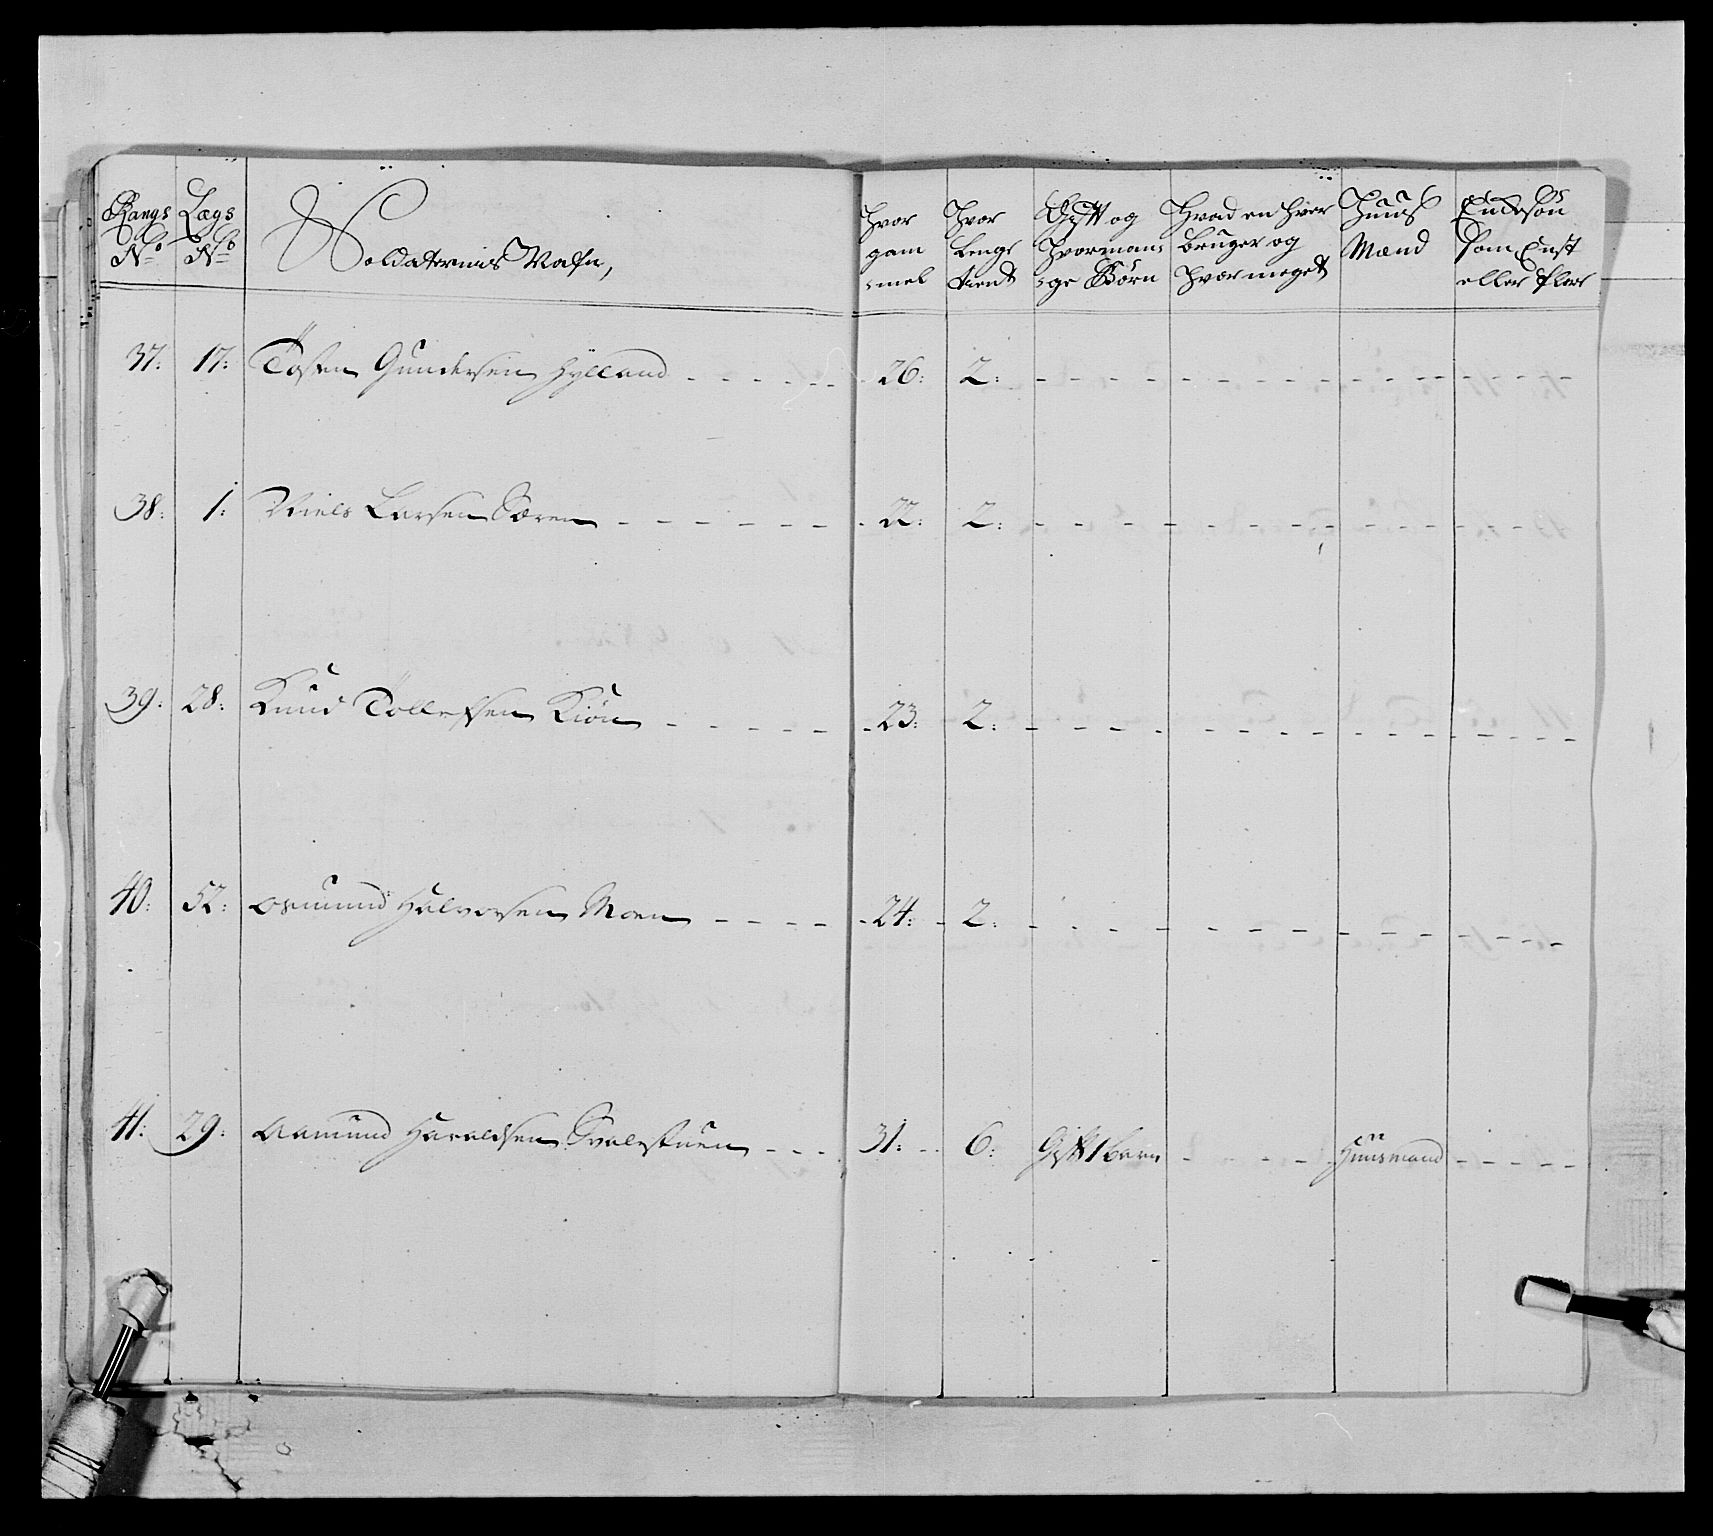 Rangs No
Lægs No
Soldaternis Nafn,
Hvor gam mel
Hvor lenge tient
Gift og Hvormange Børn
Hvad en hver bruger og hvor meget
Huus Mænd
Enckesøn som Enist eller flere
37: 17: Gundersen Hylland 26: 2:
38: 1: Niels Larsen 22: 2:
39: 28: Knud Tollefsen 23: 2:
40: 52: Osmund Halvorsen Moen 24: 2:
41: 29: Aamund Haraldsen Svalestuen 31: 6: Gift 1 barn Huusmand